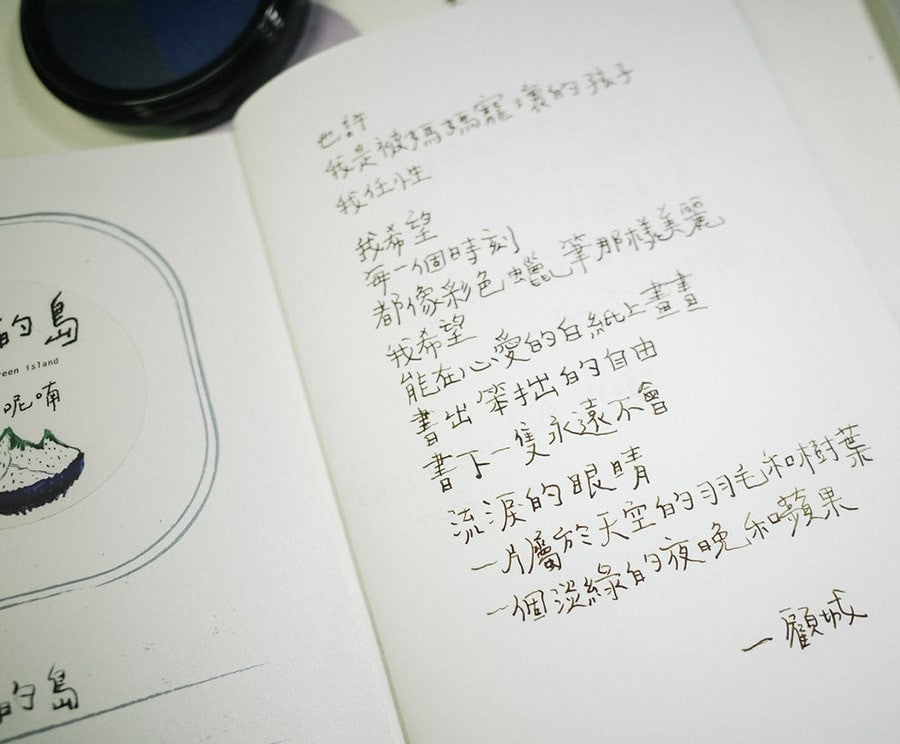 的島
reen island
呢喃
的島
也許
我是被媽媽寵壞的孩子
我任性
我希望
每一個時刻
都像彩色蠟筆那樣美麗
我希望
能在心愛的白紙上畫畫
書出笨拙的自由
書下一隻永遠不會
流淚的眼睛
一片屬於天空的羽毛和樹葉
一個淡綠的夜晚和蘋果
—顧城